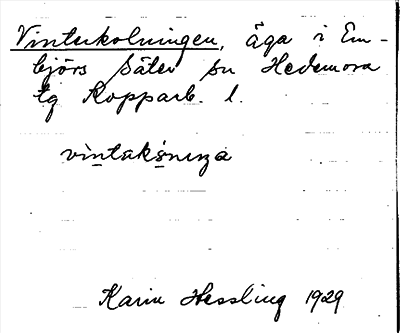 Vinterkolningen, äga i Em-
björs Säter sn Hedemora
tg Kopparb. l.
vintakǫ́nıŋa
Karin Hessling 1929